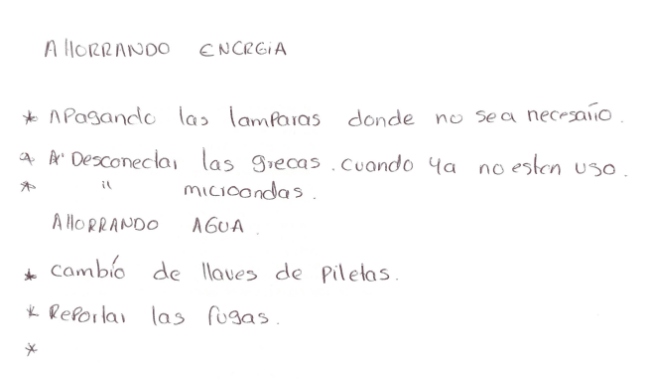 AHORRANDO ENERGIA
* APagando las lamParas donde no sea necesario.
* A' Desconectar las grecas. cuando ya no esten uso.
* " microondas.
AHORRANDO AGUA.
* cambio de llaves de Piletas.
* RePortar las fugas.
*